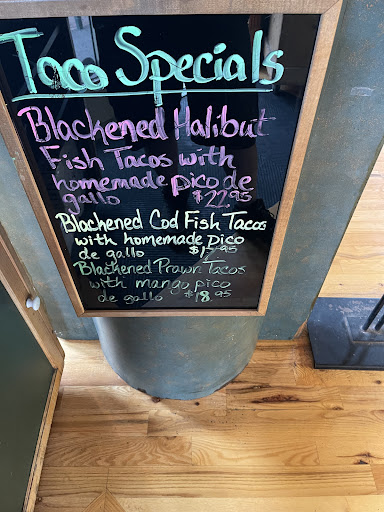 Taco Specials
Blackened Halibut
Fish Tacos with
homemade pico de
gallo $22.95
Blackened Cod Fish Tacos
with homemade pico
de gallo $17.95
Blackened Prawn Tacos
with mango pico
de gallo $18.95